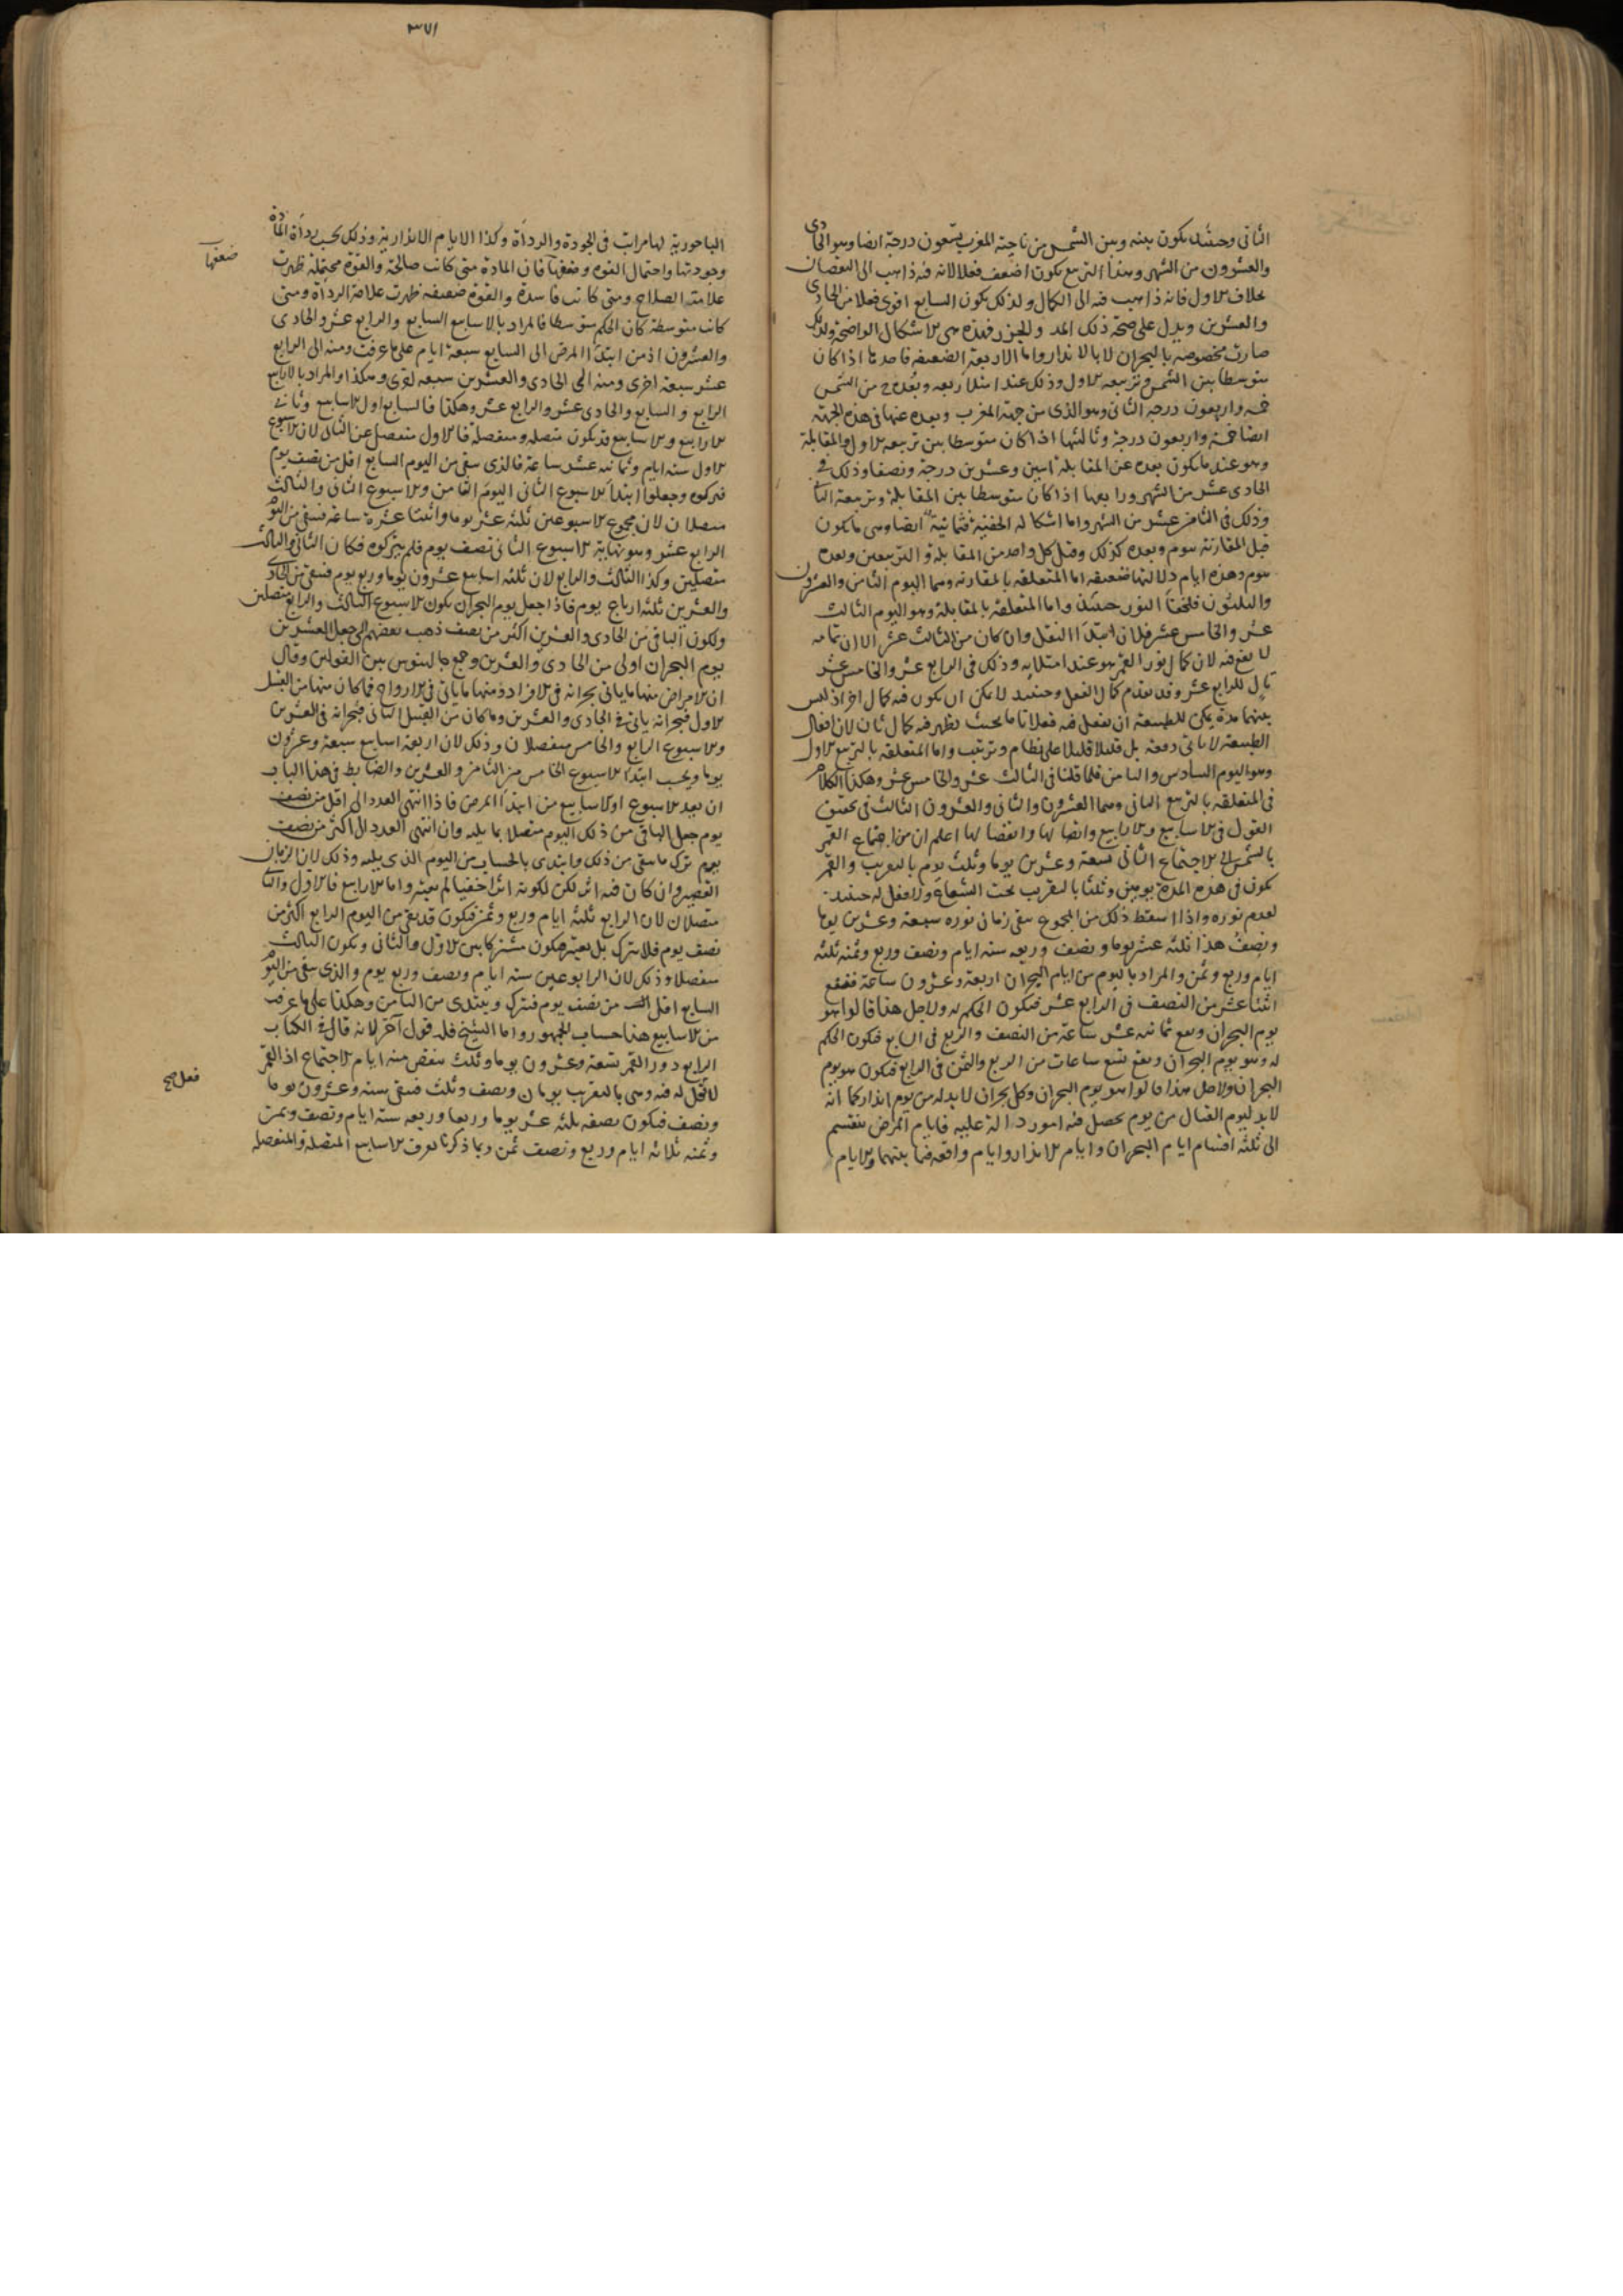 الثانى وحينئذ يكون بينه وبين الشمس من ناحية المغرب تسعون درجة ايضا وهو الحادى
والعشرون من الشهر وهذا التربيع يكون اضعف فعلا لانه فيه ذاهب الى النقصان
بخلاف الاول فانه ذاهب فيه الى الكمال ولذلك يكون السابع اقوى فعلا من الحادى
والعشرين ويدل على صحة ذلك المد والجزر فهذه هى الاشكال الواضحة ولذلك
صارت مخصوصه بالبحران لا بالانذار واما الاربعة الضعيفه فاحدها اذا كان
متوسطا بين الشمس وتربيعه الاول وذلك عند ابتدا اربعه وبعده ح من الشمس
خمسه واربعون درجه الثانى وهو الذى من جهة المغرب وبعده عنها فى هذه الجهة
ايضا خمسة واربعون درجة وثالثها اذا كان متوسطا بين تربيعه الاول والمقابلة
وهو عند ما يكون بعده عن المقابلة اثنين وعشرين درجة ونصفا وذلك فى
الحادى عشر من الشهر ورابعها اذا كان متوسطا بين المقابلة وتربيعه الثانى
وذلك فى الثامن عشر من الشهر واما اشكاله الخفية فثمانية ايضا وهى ما يكون
قبل المقارنة بيوم وبعده كذلك وقبل كل واحد من المقابلة والتربيعين وبعده
بيوم وهذه ايام دلالتها ضعيفه اما المتعلقه بالمقارنه وهما اليوم الثامن والعشرون
والثلثون فلخفا النور حينئذ واما المتعلقة بالمقابلة وهو اليوم الثالث
عشر والخامس عشر فلان ابتدا الفعل وان كان من الثالث عشر الا ان تمامه
لا يقع فيه لان كمال نور القمر هو عند امتلايه وذلك فى الرابع عشر والخامس عشر
تال للرابع عشر وقد تقدم كمال الفعل وحينئذ لا يمكن ان يكون فيه كمال اخر اذ ليس
بينهما مدة يمكن للطبيعة ان يفعل فيه فعلا تاما بحيث يظهر فيه كمال ثان لان افعال
الطبيعة لا ياتى دفعة بل قليلا قليلا على نظام وترتيب واما المتعلقه بالتربيع الاول
وهو اليوم السادس والثامن فلما قلنا فى الثالث عشر والخامس عشر وهكذا الكلام
فى المتعلقه بالتربيع الثانى وهما العشرون والثانى والعشرون الثالث فى تحقيق
القول فى الاسابيع والارابيع واتصالها وانفصالها اعلم ان من اجتماع القمر
بالشمس الى الاجتماع الثانى تسعة وعشرين يوما وثلث يوم بالتقريب والقمر
يكون فى هذه المدة يومين وثلثا بالتقريب تحت الشعاع ولا فعل له حينئذ
لعدم نوره واذا اسقط ذلك من المجموع بقى زمانى نوره سبعة وعشرين يوما
ونصف هذا ثلثه عشر يوما ونصف وربعه سته ايام ونصف وربع وثمنه ثلثه
ايام وربع وثمن والمراد باليوم من ايام البحران اربعة وعشرون ساعة فيقع
اثنتا عشر من النصف فى الرابع عشر فيكون الحكم له ولاجل هذا قالوا هو
يوم البحران ويقع ثمانيه عشر ساعة من النصف والربع فى السابع فيكون الحكم
له وهو يوم البحران ويقع تسع ساعات من الربع والثمن فى الرابع فيكون هو يوم
البحران ولاجل هذا قالوا هو يوم البحران وكل بحران لا بد له من يوم انذار كما انه
لا بد ليوم القتال من يوم يحصل فيه امور دالة عليه فايام المرض ينقسم
الى ثلثة اقسام ايام البحران وايام الانذار وايام واقعه فيما بينهما والايام
٣٧١
الباحورية لها مراتب فى الجودة والرداة وكذا الايام الانذارية وذلك بحسب رداة المادة
وجودتها واحتمال القوه وضعفها فان المادة متى كانت صالحة والقوة محتملة ظهرت
ضعفها
علامة الصلاح ومتى كانت فاسدة والقوة ضعيفه ظهرت علامة الرداة ومتى
كانت متوسطة كان الحكم متوسطا فالمراد بالاسابيع السابع والرابع عشر والحادى
والعشرون اذ من ابتدا المرض الى السابع سبعة ايام على ما عرفت ومنه الى الرابع
عشر سبعة اخرى ومنه الى الحادى والعشرين سبعه اخرى وهكذا والمراد بالارابيع
الرابع والسابع والحادى عشر والرابع عشر وهكذا فالسابع اول الاسابيع وثانى
الارابيع والاسابيع قد يكون متصله ومنفصلة فالاول منفصل عن الثانى لان الاسبوع
الاول سته ايام وثمانيه عشر ساعة فالذى بقى من اليوم السابع اقل من نصف يوم
فتركوه وجعلوا ابتدا الاسبوع الثانى اليوم الثامن والاسبوع الثانى والثالث
متصلان لان مجموع الاسبوعين ثلثه عشر يوما واثنتا عشرة ساعة فبقى من اليوم
الرابع عشر وهو نهاية الاسبوع الثانى نصف يوم فلم يتركوه فكان الثانى والثالث
متصلين وكذا الثالث والرابع لان ثلثه اسابيع عشرون يوما وربع يوم فبقى من الحادى
والعشرين ثلثه ارباع يوم فاذا جعل يوم البحران يكون الاسبوع الثالث والرابع متصلين
ولكون الباقى من الحادى والعشرين اكثر من نصف ذهب بعضهم الى جعل العشرين
يوم البحران اولى من الحادى والعشرين وجمع جالينوس بين القولين وقال
ان الامراض منها ما ياتى بحرانه فى الافراد ومنها ما ياتى فى الازواج فما كان منها من القبيل
الاول فبحرانه ياتى فى الحادى والعشرين وما كان من القبيل الثانى فبحرانه فى العشرين
والاسبوع الرابع والخامس منفصلان وذلك لان اربعة اسابيع سبعة وعشرون
يوما ويحسب ابتدا الاسبوع الخامس من الثامن والعشرين والضابط فى هذا الباب
ان يعد الاسبوع او الاسابيع من ابتدا المرض فاذا انتهى العدد الى اقل من نصف
يوم جعل الباقى من ذلك اليوم متصلا بما يليه وان انتهى العدد الى اكثر من نصف
يوم ترك ما بقى من ذلك وابتدى بالحساب من اليوم الذى يليه وذلك لان الزمان
القصير وان كان فيه اثر لكن لكونه اثرا خفيا لم يعتبر واما الارابيع فالاول والثانى
متصلان لان الرابع ثلثة ايام وربع وثمن فيكون قد بقى من اليوم الرابع اكثر من
نصف يوم فلا يترك بل يعتبر فيكون مشتركا بين الاول والثانى ويكون الثالث
منفصلا وذلك لان الرابوعين ستة ايام ونصف وربع يوم والذى بقى من اليوم
السابع اقل من نصف يوم فيترك ويبتدى من الثامن وهكذا على ما عرفت
من الاسابيع هذا حساب الجمهور واما الشيخ فله قول آخر لانه قال فى الكتاب
الرابع دور القمر تسعة وعشرون يوما وثلث ينقص منه ايام الاجتماع اذ القمر
لا فعل له فيه وهى بالتقريب يومان ونصف وثلث فيبقى سته وعشرون يوما
فعل صح
ونصف فيكون نصفه ثلثه عشر يوما وربعا وربعه ستة ايام ونصف وثمن
وثمنه ثلاثه ايام وربع ونصف ثمن وبما ذكرنا تعرف الاسابيع المتصلة والمنفصله